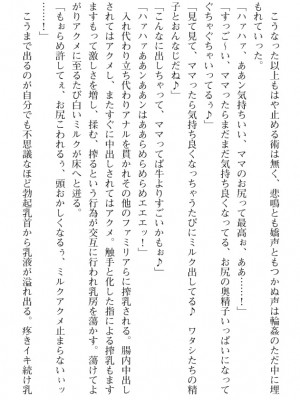 こうなった以上もはや止める術は無く、悲鳴とも嬌声ともつかぬ声は輪姦のただ中に埋
もれていった。
「ハァハァ、ああン気持ちいい、ママのお尻って最高ぉ、ああ……！」
「すっっご〜い、ママったらまだまだ気持ち良くなってる、お尻の奥精子いっぱいになって
ぐちゃぐちゃいってるぅ♪」
「見て見て、ママったら気持ち良くなっちゃうたびにミルク出してる♪　ワタシたちの精
子とおんなじだね♪」
「こんなに出しちゃって、ママってば牛よりすごいかもぉ♪」
「ハァハァああンあンはぁあらめらめらめエエエッ！」
入れ代わり立ち代わりアナルを貫かれその他のファミリアらに搾乳される。腸内中出し
されてはアクメ、またすぐに中出しされてはアクメ。触手と化した指による搾乳もます
ますもって激しさを増し、揉む、搾るという行為が交互に行われ乳房を蕩かす。蕩けてよ
がりアクメに至るたび白いミルクが床へと迸る。
「もぉらめ許してぇ、お尻こわれるぅ、頭おかしくなるぅ、ミルクアクメ止まらないぃッ
……！」
こうまで出るのが自分でも不思議なほど勃起乳首から乳液が溢れ出る。疼きイキ続け乳